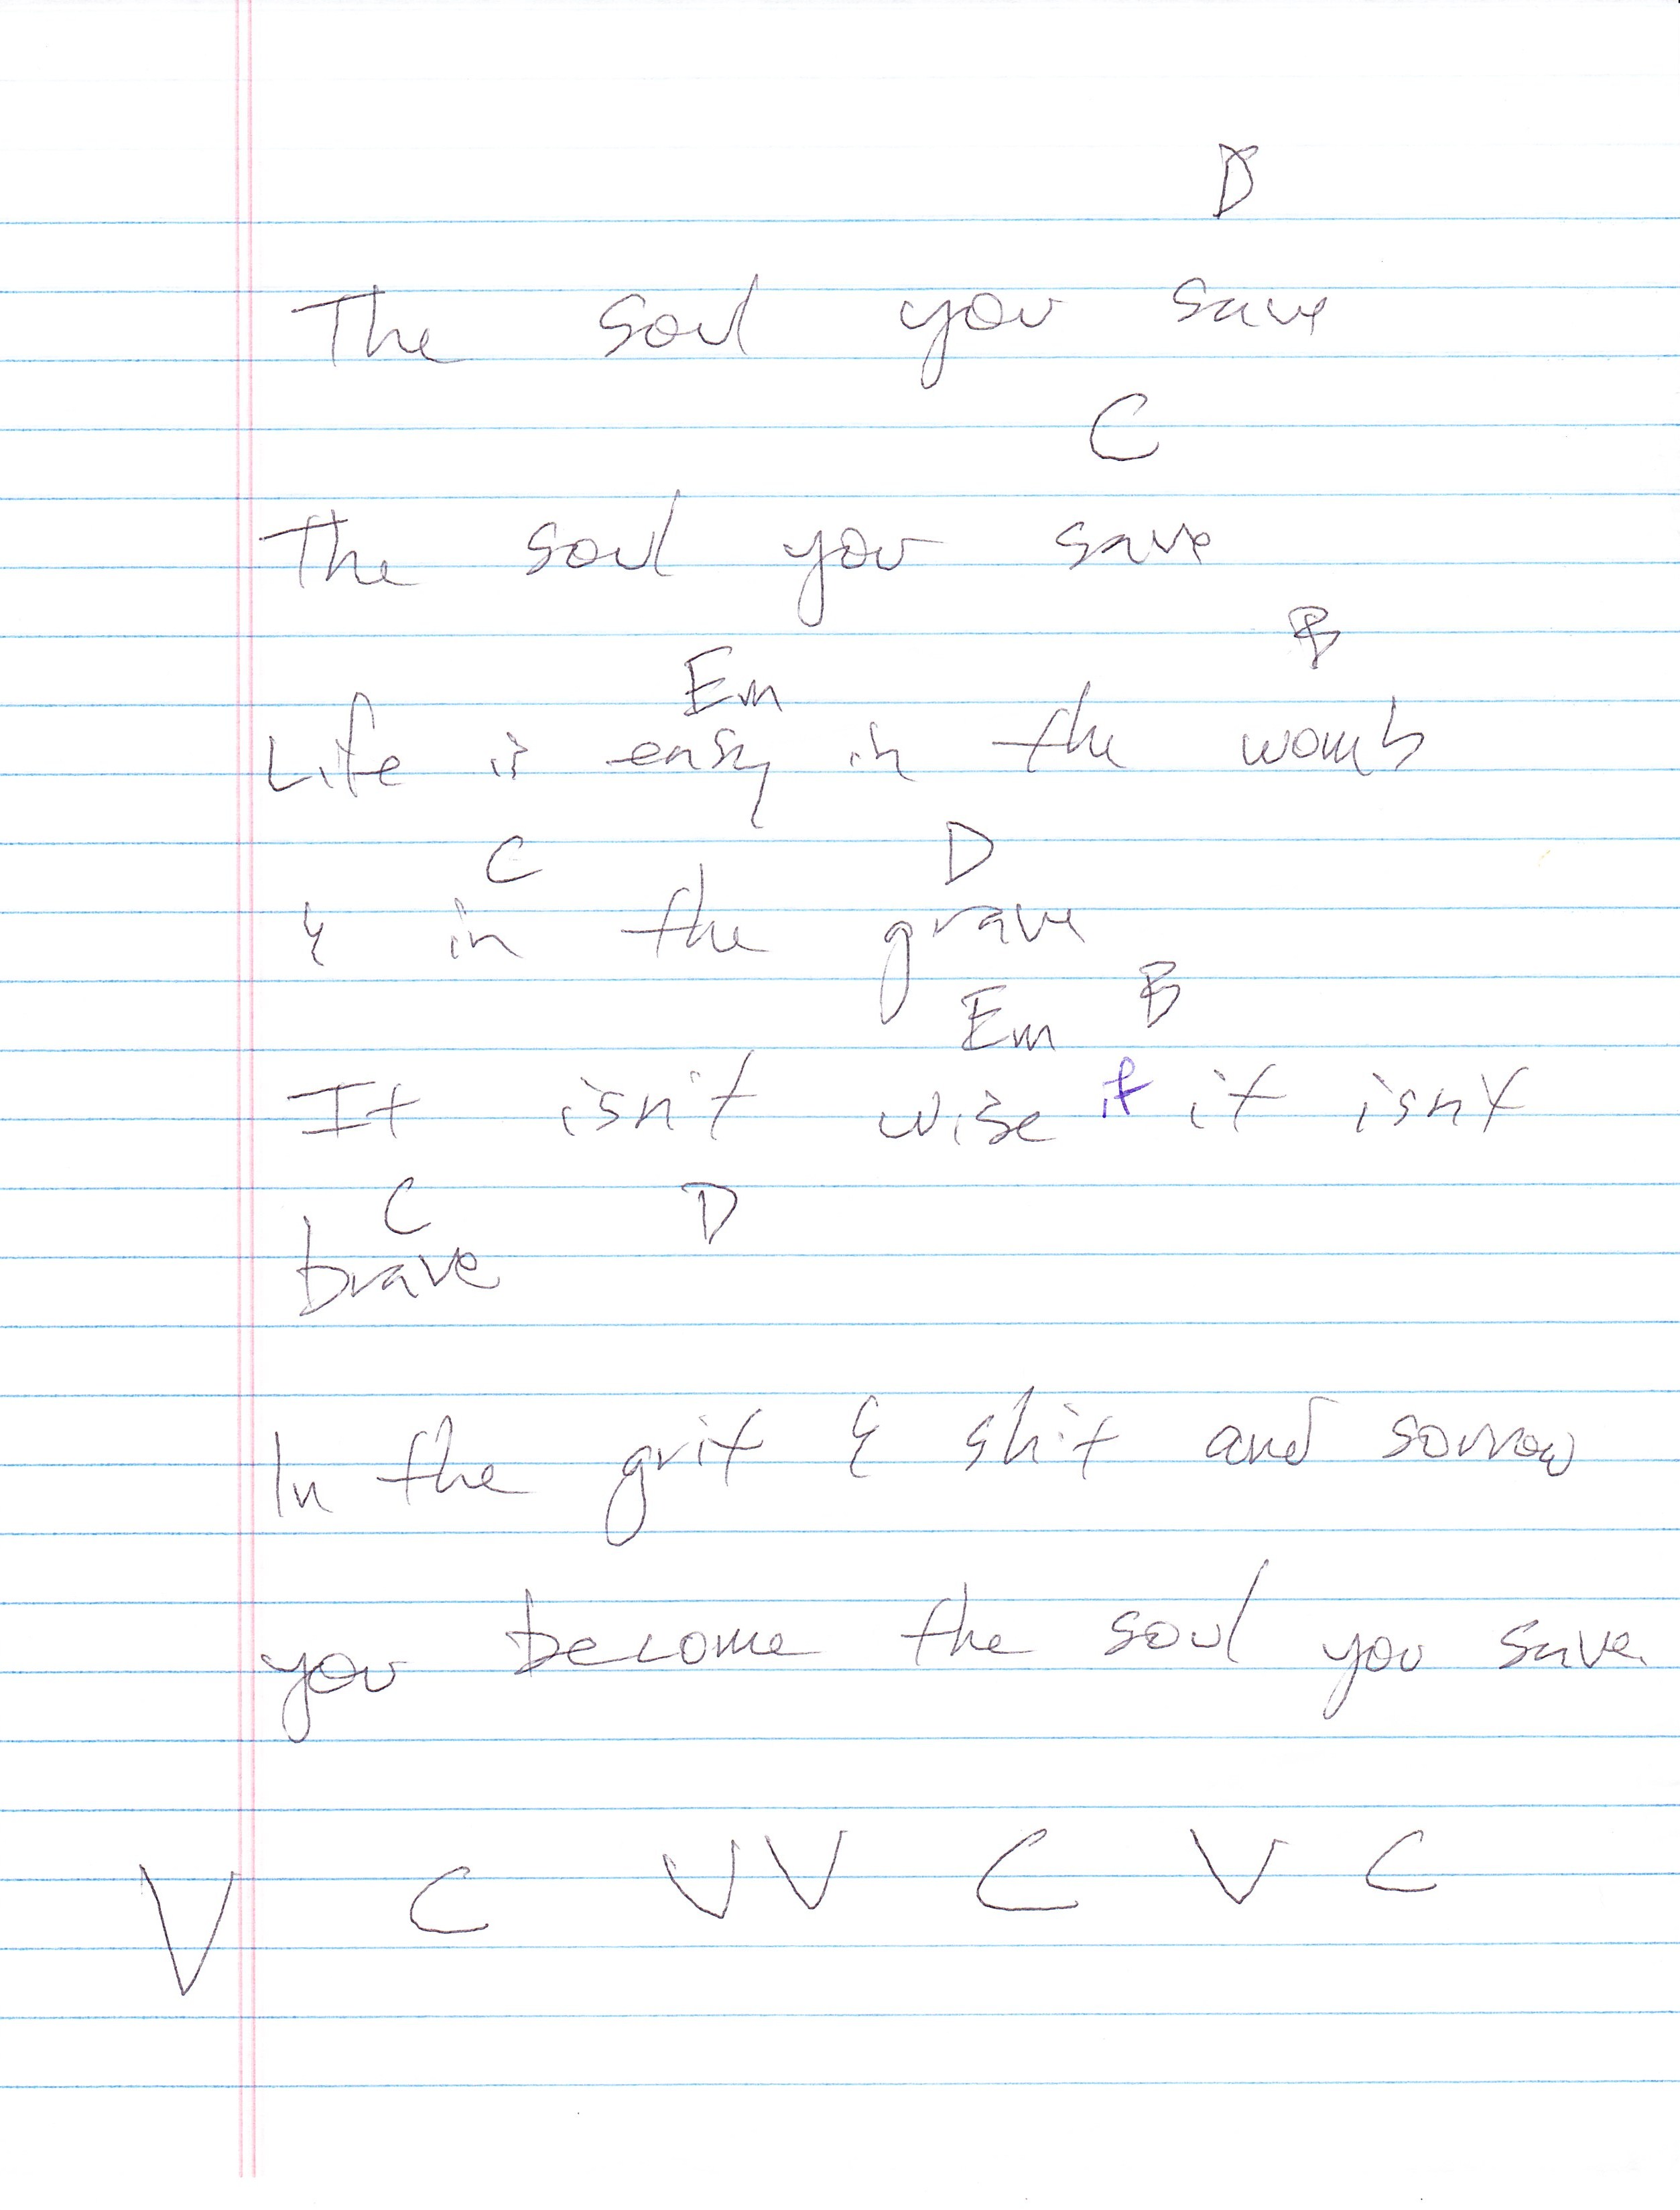 D
The soul you save
C
The soul you save
Em B
Life is easy in the womb
C D
& in the grave
Em B
It isn't wise if it isn't
C D
brave
In the grit & shit and sorrow
you become the soul you save.
V C VV C V C